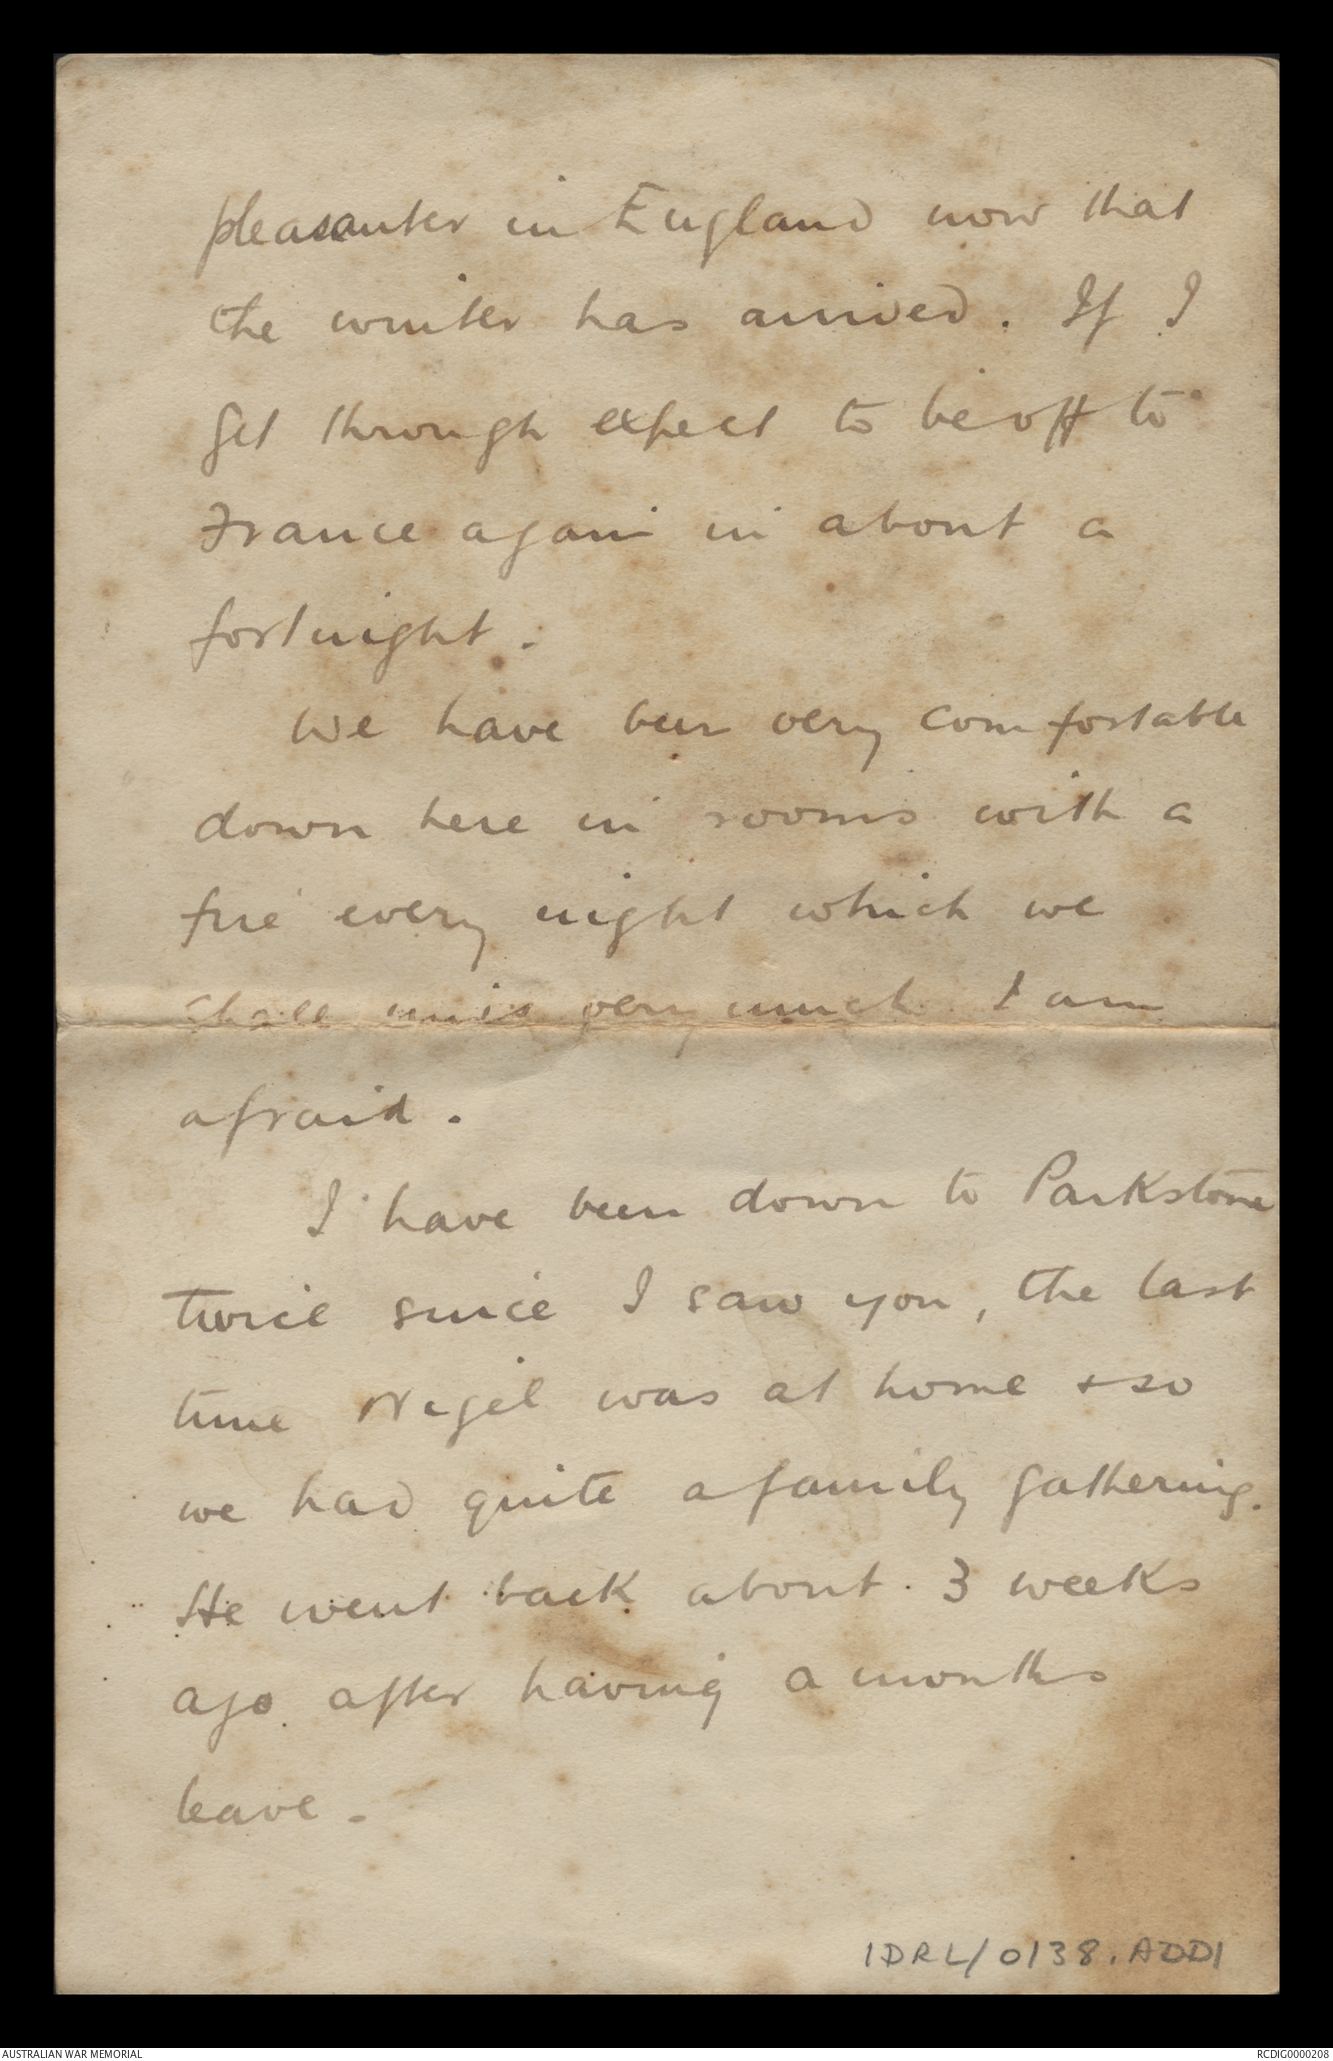 pleasanter in England now that
the winter has arrived. If I
get through expect to be off to
France again in about a
fortnight.
We have been very comfortable
down here in rooms with a
fire every night which we
shall miss very much I am
afraid.
I have been down to Parkstone
twice since I saw you, the last
time Nigel was at home + so
we had quite a family gathering.
He went back about 3 weeks
ago after having a months
leave -
1DRL/0138.ADD1
AUSTRALIAN WAR MEMORIAL
RCDIG0000208